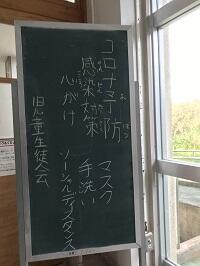 コロナ予防
感染対策 マスク
心がけ 手洗い
ソーシャルディスタンス
旧児童生徒会